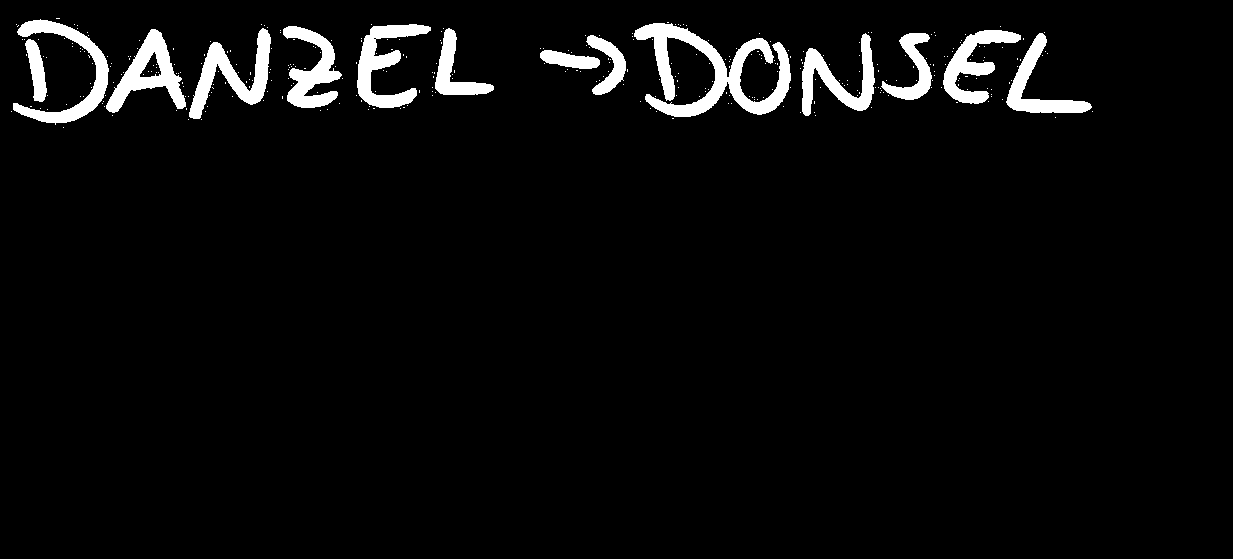 DANZEL → DONSEL